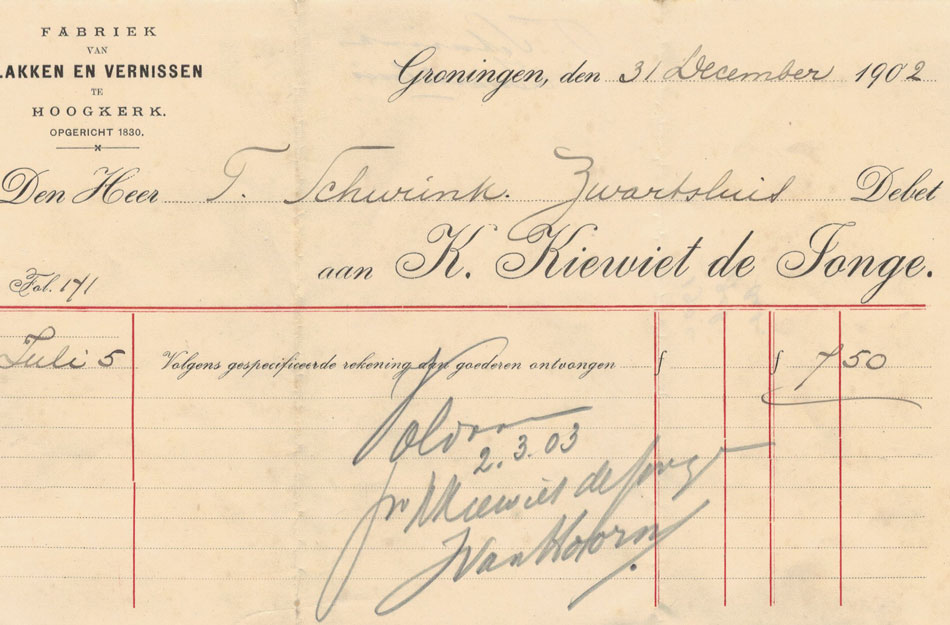 FABRIEK
VAN
LAKKEN EN VERNISSEN
TE
HOOGKERK.
OPGERICHT 1830.
Groningen, den 31 December 1902
Den Heer T. Schurink. Zwartsluis Debet
aan K. Kiewiet de Jonge.
Fol. 171
Juli 5 Volgens gespecificeerde rekening aan goederen ontvangen f f 7 50
Voldaan
2.3.03
pr K Kiewiet de Jonge
JVanHoorn